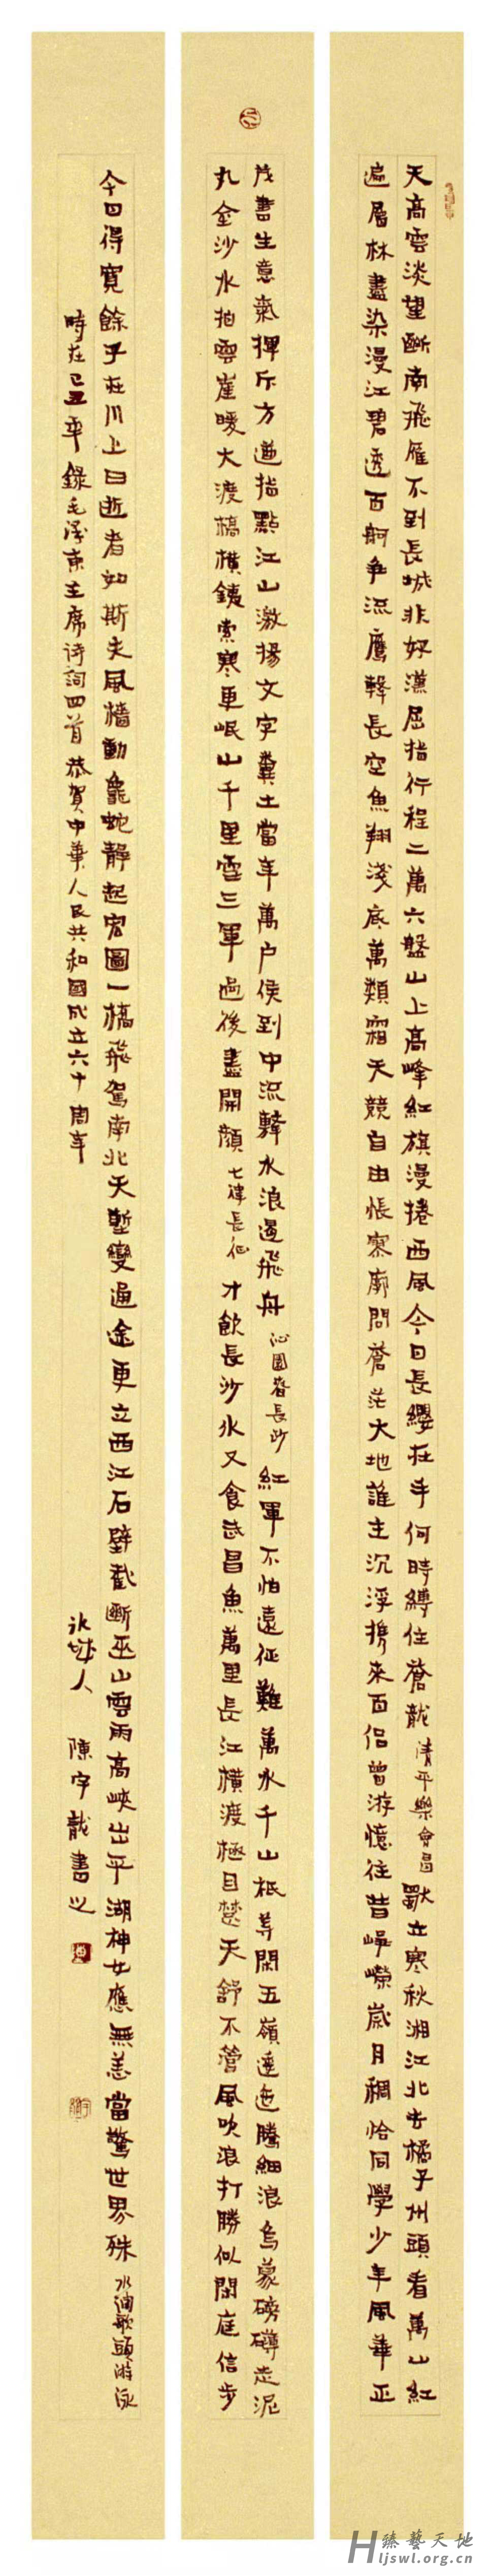 天高雲淡望斷南飛雁不到長城非好漢屈指行程二萬六盤山上高峰紅旗漫捲西風今日長纓在手何時縛住蒼龍 清平樂會昌 獨立寒秋湘江北去橘子州頭看萬山紅
遍層林盡染漫江碧透百舸爭流鷹擊長空魚翔淺底萬類霜天競自由悵寥廓問蒼茫大地誰主沉浮攜來百侶曾游憶往昔崢嶸歲月稠恰同學少年風華正
茂書生意氣揮斥方遒指點江山激揚文字糞土當年萬户侯到中流擊水浪遏飛舟 沁園春長沙 紅軍不怕遠征難萬水千山祇等閑五嶺逶迤騰細浪烏蒙磅礴走泥
丸金沙水拍雲崖暖大渡橋橫鐵索寒更岷山千里雪三軍過後盡開顏 七律長征 才飲長沙水又食武昌魚萬里長江橫渡極目楚天舒不管風吹浪打勝似閑庭信步
今日得寬餘子在川上曰逝者如斯夫風檣動龜蛇靜起宏圖一橋飛駕南北天塹變通途更立西江石壁截斷巫山雲雨高峽出平湖神女應無恙當驚世界殊 水調歌頭游泳
時在己丑年錄毛澤東主席诗詞四首恭賀中華人民共和國成立六十周年 冰城人 陳宇龍書之
臻藝天地
Hljswl.org.cn